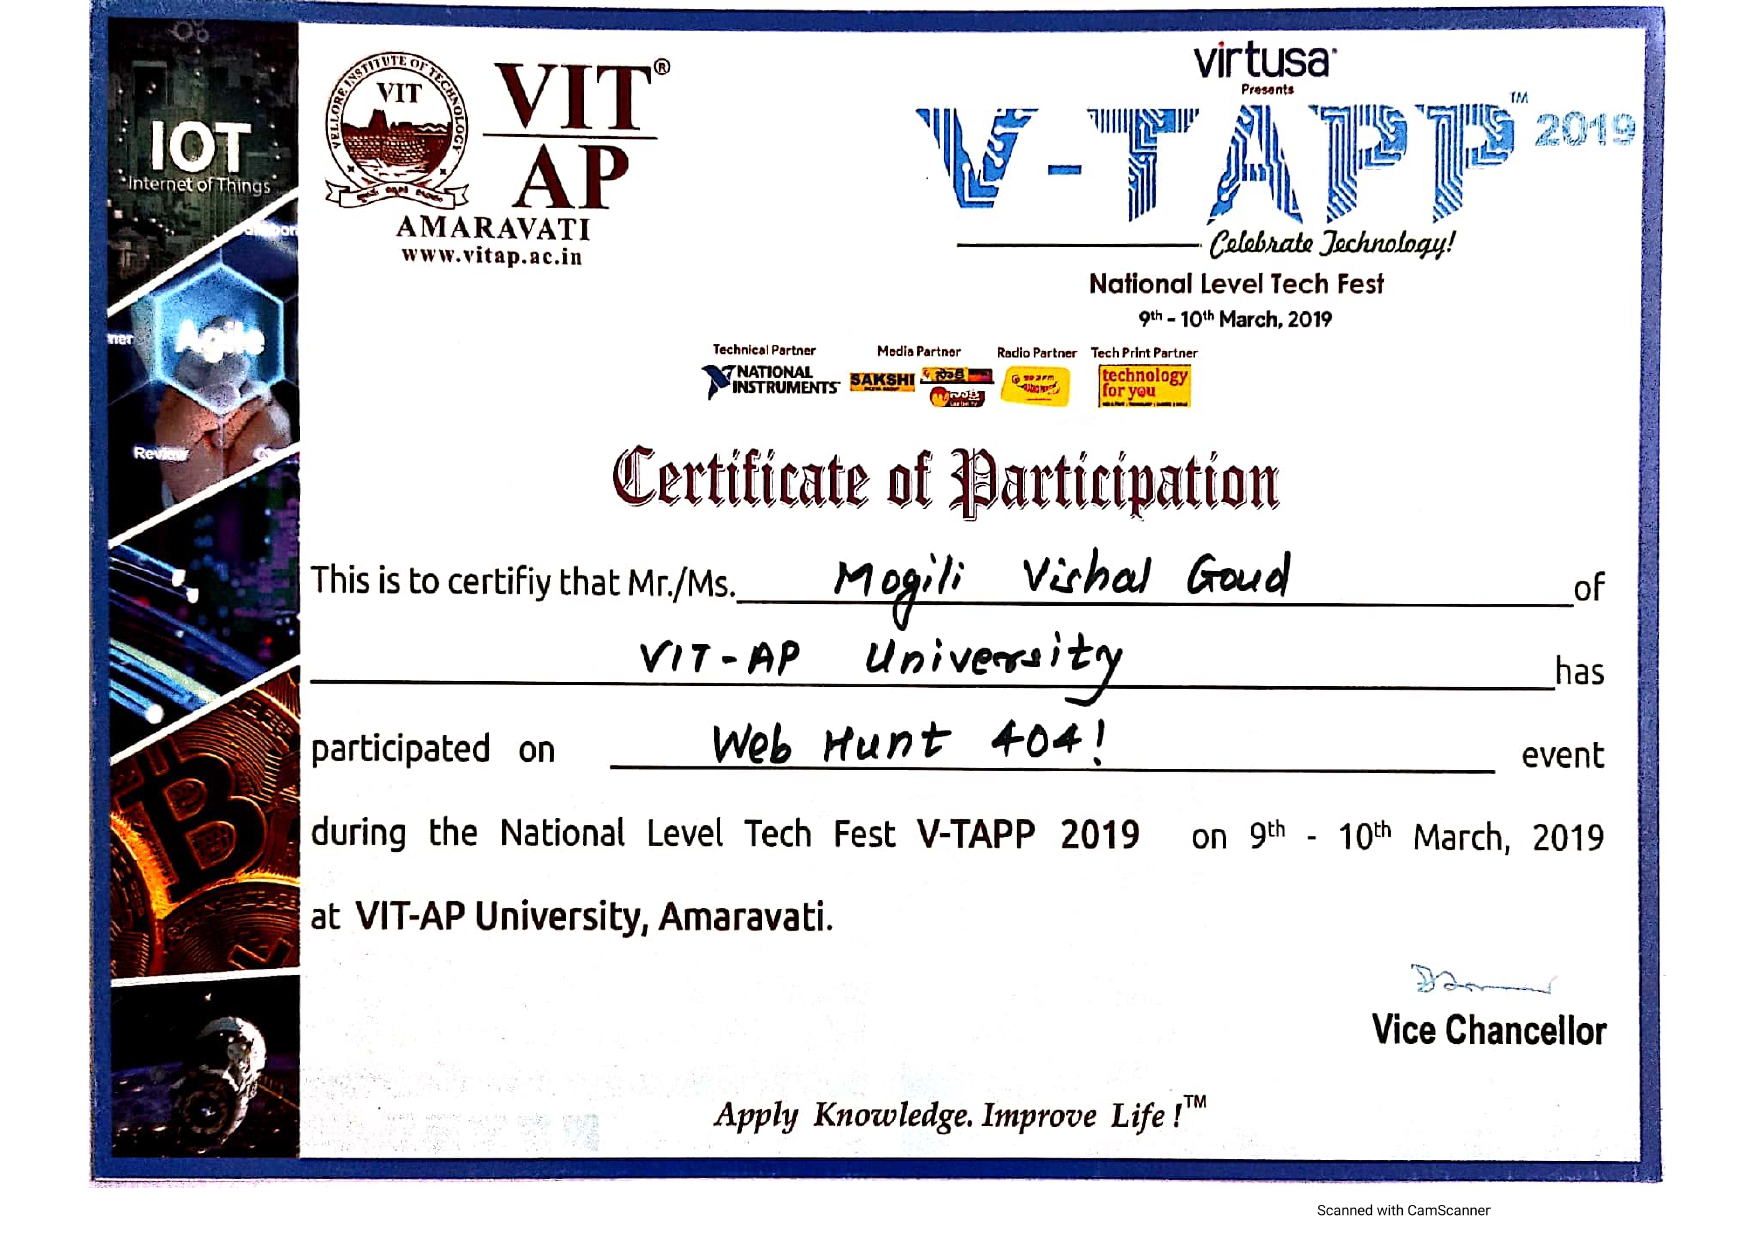 IOT
Internet of Things
Agile
Review
VELLORE INSTITUTE OF TECHNOLOGY
VIT
VIT®
AP
AMARAVATI
www.vitap.ac.in
virtusa
Presents
V-TAPP™ 2019
Celebrate Technology!
National Level Tech Fest
9th - 10th March, 2019
Technical Partner Media Partner Radio Partner Tech Print Partner
NATIONAL INSTRUMENTS SAKSHI technology for you
Certificate of Participation
This is to certifiy that Mr./Ms. Mogili Vishal Goud of
VIT-AP University has
participated on Web Hunt 404! event
during the National Level Tech Fest V-TAPP 2019 on 9th - 10th March, 2019
at VIT-AP University, Amaravati.
Vice Chancellor
Apply Knowledge. Improve Life !™
Scanned with CamScanner